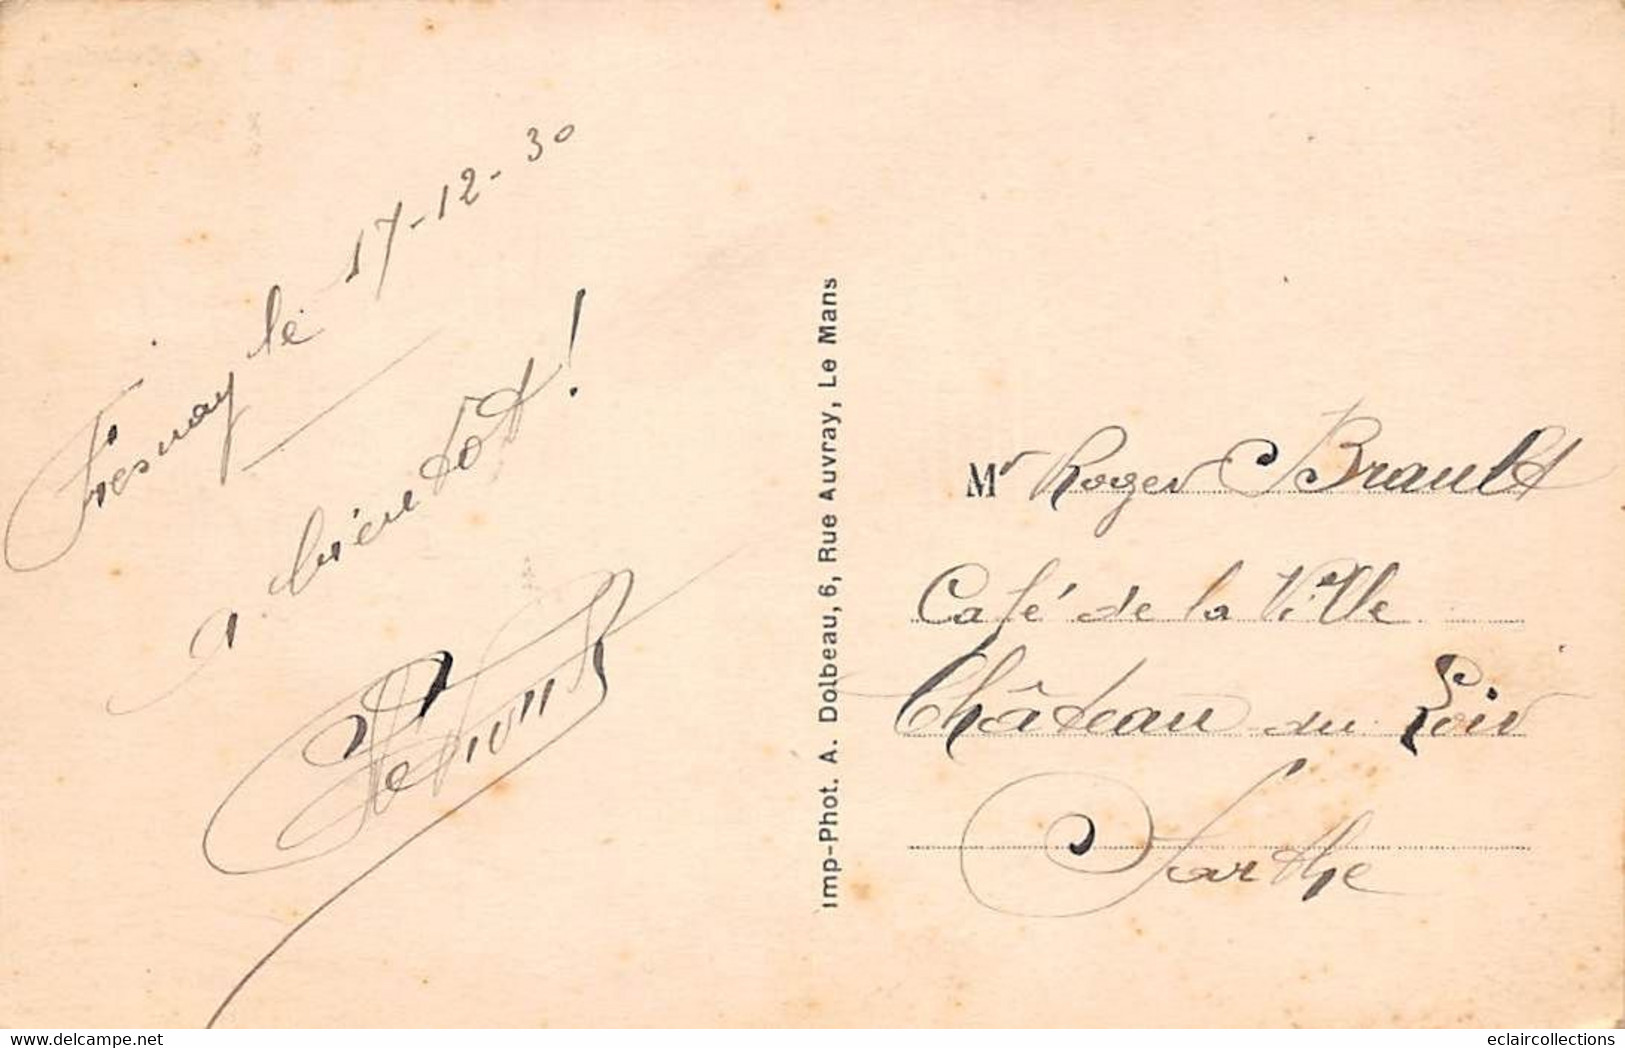 Fresnay le 17-12-30
a bientôt !
Imp-Phot. A. Dolbeau, 6, Rue Auvray, Le Mans
Mr Roger Brault
Café de la Ville
Château du Loir
Sarthe
eclaircollections